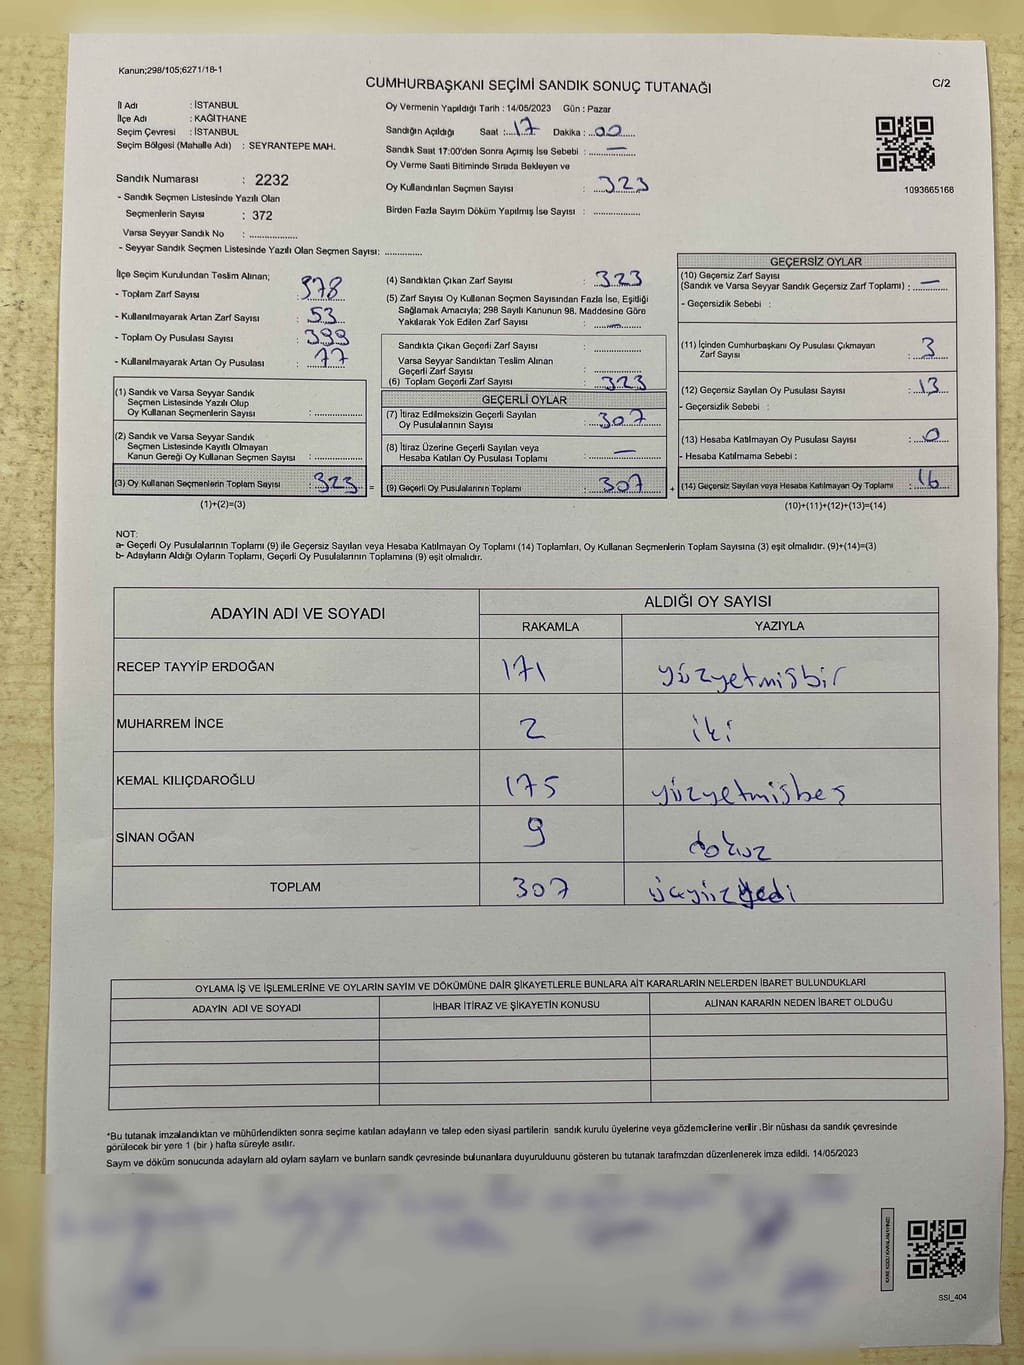 Kanun;298/105;6271/18-1
CUMHURBAŞKANI SEÇİMİ SANDIK SONUÇ TUTANAĞI
C/2
İl Adı : İSTANBUL
İlçe Adı : KAĞITHANE
Seçim Çevresi : İSTANBUL
Seçim Bölgesi (Mahalle Adı) : SEYRANTEPE MAH.
Sandık Numarası : 2232
- Sandık Seçmen Listesinde Yazılı Olan
Seçmenlerin Sayısı : 372
Varsa Seyyar Sandık No : ................
- Seyyar Sandık Seçmen Listesinde Yazılı Olan Seçmen Sayısı: ............
Oy Vermenin Yapıldığı Tarih : 14/05/2023 Gün : Pazar
Sandığın Açıldığı Saat : 17 Dakika : 00
Sandık Saat 17:00'den Sonra Açımış İse Sebebi : —
Oy Verme Saati Bitiminde Sırada Bekleyen ve
Oy Kullandırılan Seçmen Sayısı : 323
Birden Fazla Sayım Döküm Yapılmış İse Sayısı : ................
1093665166
İlçe Seçim Kurulundan Teslim Alınan;
- Toplam Zarf Sayısı : 378
- Kullanılmayarak Artan Zarf Sayısı : 53
- Toplam Oy Pusulası Sayısı : 399
- Kullanılmayarak Artan Oy Pusulası : 77
(1) Sandık ve Varsa Seyyar Sandık
Seçmen Listesinde Yazılı Olup
Oy Kullanan Seçmenlerin Sayısı : ................
(2) Sandık ve Varsa Seyyar Sandık
Seçmen Listesinde Kayıtlı Olmayan
Kanun Gereği Oy Kullanan Seçmen Sayısı : ................
(3) Oy Kullanan Seçmenlerin Toplam Sayısı : 323 =
(1)+(2)=(3)
(4) Sandıktan Çıkan Zarf Sayısı : 323
(5) Zarf Sayısı Oy Kullanan Seçmen Sayısından Fazla İse, Eşitliği
Sağlamak Amacıyla; 298 Sayılı Kanunun 98. Maddesine Göre
Yakılarak Yok Edilen Zarf Sayısı : —
Sandıkta Çıkan Geçerli Zarf Sayısı : ................
Varsa Seyyar Sandıktan Teslim Alınan
Geçerli Zarf Sayısı : ................
(6) Toplam Geçerli Zarf Sayısı : 323
GEÇERLİ OYLAR
(7) İtiraz Edilmeksizin Geçerli Sayılan
Oy Pusulalarının Sayısı : 307
(8) İtiraz Üzerine Geçerli Sayılan veya
Hesaba Katılan Oy Pusulası Toplamı : —
(9) Geçerli Oy Pusulalarının Toplamı : 307 +
GEÇERSİZ OYLAR
(10) Geçersiz Zarf Sayısı
(Sandık ve Varsa Seyyar Sandık Geçersiz Zarf Toplamı) : —
- Geçersizlik Sebebi :
(11) İçinden Cumhurbaşkanı Oy Pusulası Çıkmayan
Zarf Sayısı : 3
(12) Geçersiz Sayılan Oy Pusulası Sayısı : 13
- Geçersizlik Sebebi :
(13) Hesaba Katılmayan Oy Pusulası Sayısı : 0
- Hesaba Katılmama Sebebi :
(14) Geçersiz Sayılan veya Hesaba Katılmayan Oy Toplamı : 16
(10)+(11)+(12)+(13)=(14)
NOT:
a- Geçerli Oy Pusulalarının Toplamı (9) ile Geçersiz Sayılan veya Hesaba Katılmayan Oy Toplamı (14) Toplamları, Oy Kullanan Seçmenlerin Toplam Sayısına (3) eşit olmalıdır. (9)+(14)=(3)
b- Adayların Aldığı Oyların Toplamı, Geçerli Oy Pusulalarının Toplamına (9) eşit olmalıdır.
ADAYIN ADI VE SOYADI ALDIĞI OY SAYISI
RAKAMLA YAZIYLA
RECEP TAYYİP ERDOĞAN 171 yüzyetmişbir
MUHARREM İNCE 2 iki
KEMAL KILIÇDAROĞLU 175 yüzyetmişbeş
SİNAN OĞAN 9 dokuz
TOPLAM 307 üçyüzyedi
OYLAMA İŞ VE İŞLEMLERİNE VE OYLARIN SAYIM VE DÖKÜMÜNE DAİR ŞİKAYETLERLE BUNLARA AİT KARARLARIN NELERDEN İBARET BULUNDUKLARI
ADAYIN ADI VE SOYADI İHBAR İTİRAZ VE ŞİKAYETİN KONUSU ALINAN KARARIN NEDEN İBARET OLDUĞU
*Bu tutanak imzalandıktan ve mühürlendikten sonra seçime katılan adayların ve talep eden siyasi partilerin sandık kurulu üyelerine veya gözlemcilerine verilir .Bir nüshası da sandık çevresinde
görülecek bir yere 1 (bir ) hafta süreyle asılır.
Saym ve döküm sonucunda adaylarn ald oylam saylam ve bunlarn sandk çevresinde bulunanlara duyurulduunu gösteren bu tutanak tarafmzdan düzenlenerek imza edildi. 14/05/2023
SSI_404